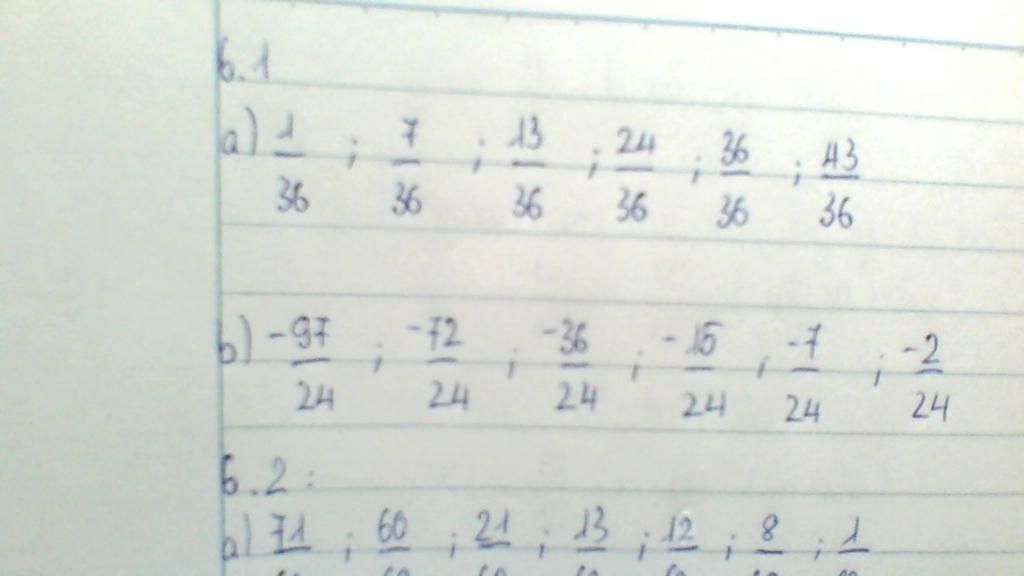 6.1
a) 1/36 ; 7/36 ; 13/36 ; 24/36 ; 36/36 ; 43/36
b) -97/24 ; -72/24 ; -36/24 ; -15/24 ; -7/24 ; -2/24
6.2:
a) 71 ; 60 ; 21 ; 13 ; 12 ; 8 ; 1